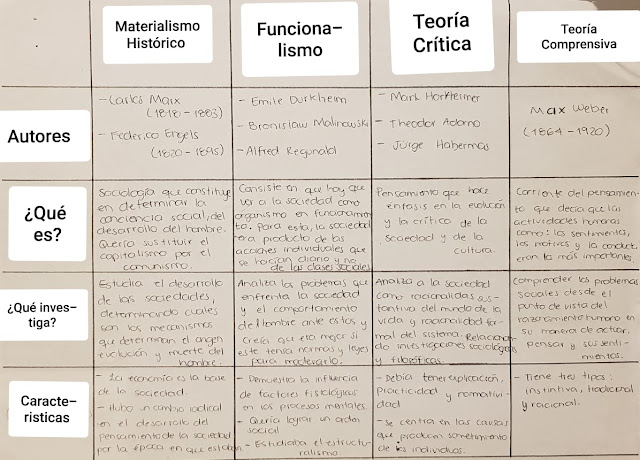 Materialismo
Histórico
Funciona–
lismo
Teoría
Crítica
Teoría
Comprensiva
Autores
- Carlos Marx
(1818 - 1883)
- Federico Engels
(1820 - 1895)
- Emile Durkheim
- Bronislaw Malinowski
- Alfred Reginald
- Mark Horkheimer
- Theodor Adorno
- Jürge Habermas
Max Weber
(1864 - 1920)
¿Qué
es?
Sociología que constituye
en determinar la
conciencia social, del
desarrollo del hombre.
Quería sustituir el
capitalismo por el
comunismo.
Consiste en que hay que
ver a la sociedad como
organismo en funcionamien
to. Para esta, la sociedad
era producto de las
acciones individuales que
se hacían diario y no
de las clases sociales
Pensamiento que hace
énfasis en la evolución
y la crítica de la
sociedad y de la
cultura.
Corriente del pensamien-
to que decía que las
actividades humanas
como: los sentimientos,
los motivos y la conducta,
eran la más importantes.
¿Qué inves–
tiga?
Estudia el desarrollo
de las sociedades,
determinando cuales
son los mecanismos
que determinan el origen
evolución y muerte del
hombre.
Analiza los problemas que
enfrenta la sociedad
y el comportamiento
del hombre ante estos y
creía que era mejor si
este tenía normas y leyes
para moderarlo.
Analiza a la sociedad
como racionalidas sus-
tantiva del mundo de la
vida y racionalidad for-
mal del sistema. Relacionan-
do investigaciones sociológicas
y filosóficas.
Comprender los problemas
sociales desde el
punto de vista del
razonamiento humano en
su manera de actuar,
pensar y sus senti-
mientos.
Caracte–
risticas
- La economía es la base
de la sociedad.
- Hubo un cambio radical
en el desarrollo del
pensamiento de la sociedad
por la época en que estaban
- Demuestra la influencia
de factores fisiológicos
en los procesos mentales.
- Quería lograr un orden
social
- Estudiaba el estructu-
ralismo.
- Debía tener explicación,
practicidad y normativi-
dad
- Se centra en las causas
que producen sometimiento
de los individuos.
- Tiene tres tipos:
instintiva, tradicional
y racional.